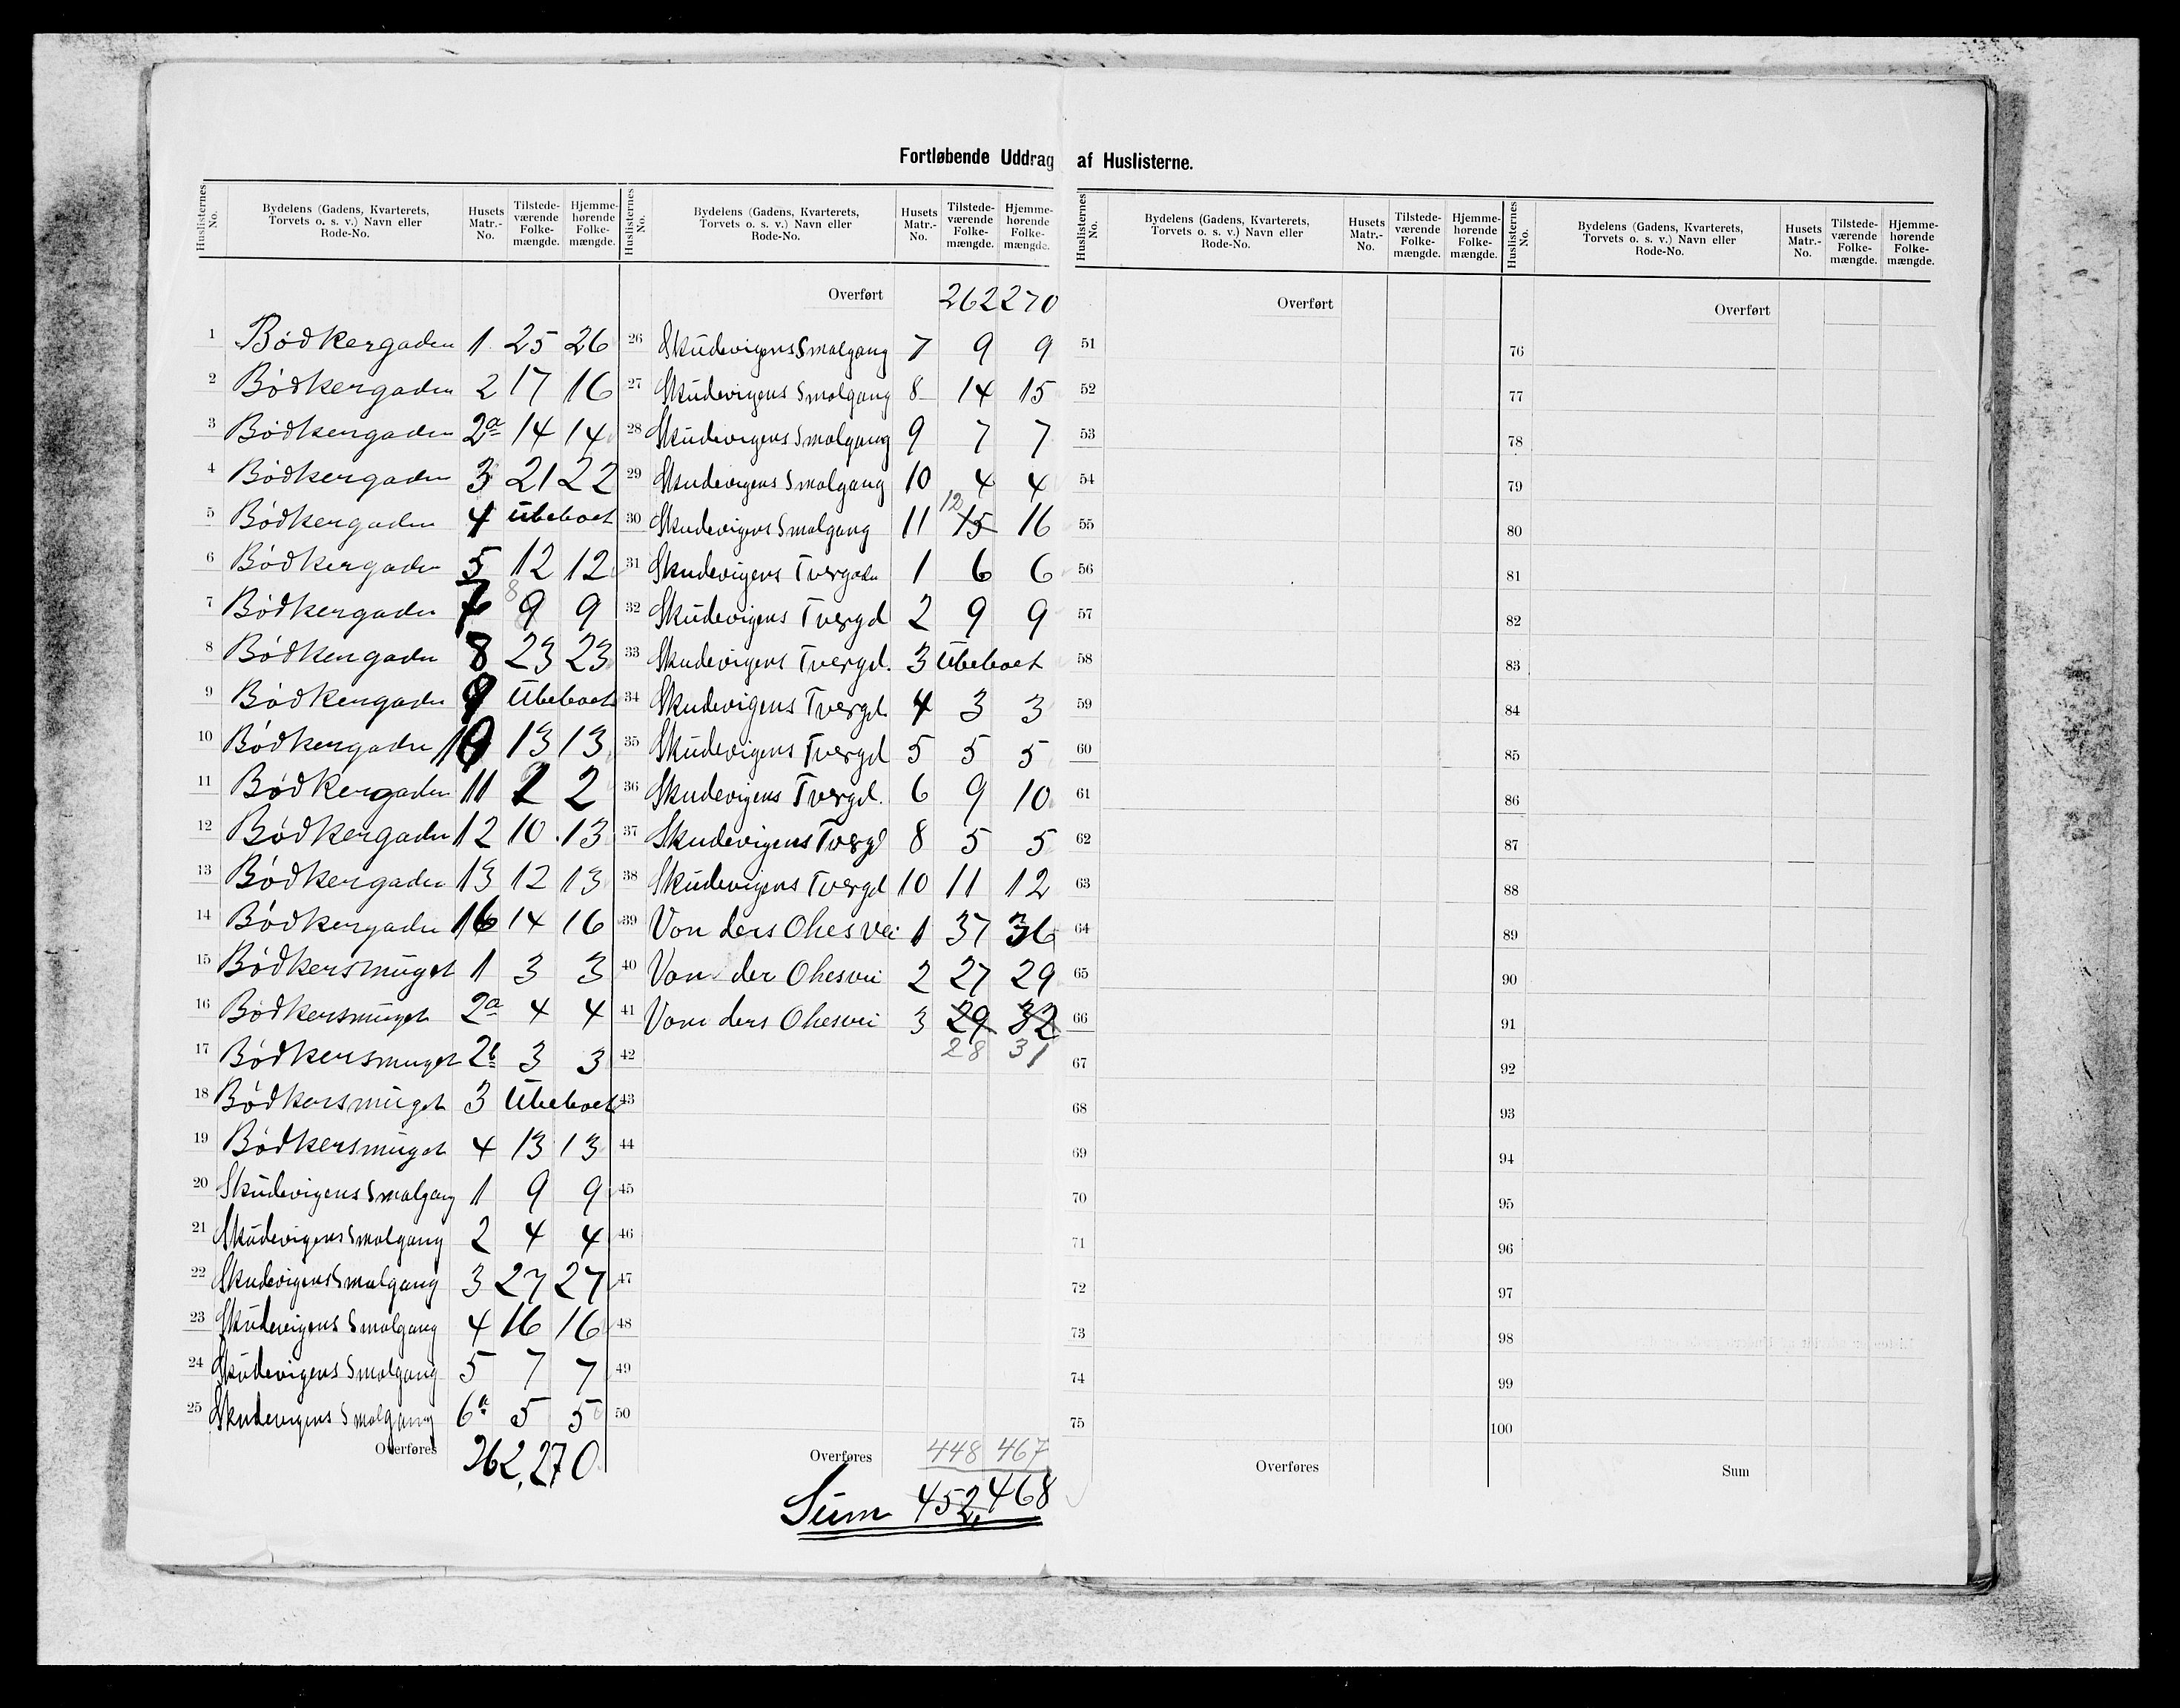 Fortløbende Uddrag af Huslisterne.
Huslisternes No. | Bydelens (Gadens, Kvarterets, Torvets o. s. v.) Navn eller Rode-No. | Husets Matr.-No. | Tilstede-værende Folke-mængde. | Hjemme-hørende Folke-mængde.
1 Bødkergaden 1 25 26
2 Bødkergaden 2 17 16
3 Bødkergaden 2a 14 14
4 Bødkergaden 3 21 22
5 Bødkergaden 4 Ubeboet
6 Bødkergaden 5 12 12
7 Bødkergaden 7 9 8 9
8 Bødkergaden 8 23 23
9 Bødkergaden 9 Ubeboet
10 Bødkergaden 10 13 13
11 Bødkergaden 11 2 2
12 Bødkergaden 12 10 13
13 Bødkergaden 13 12 13
14 Bødkergaden 16 14 16
15 Bødkersmuget 1 3 3
16 Bødkersmuget 2a 4 4
17 Bødkersmuget 2b 3 3
18 Bødkersmuget 3 Ubeboet
19 Bødkersmuget 4 13 13
20 Skudevigens Smalgang 1 9 9
21 Skudevigens Smalgang 2 4 4
22 Skudevigens Smalgang 3 27 27
23 Skudevigens Smalgang 4 16 16
24 Skudevigens Smalgang 5 7 7
25 Skudevigens Smalgang 6a 5 5
Overføres 262, 270
Huslisternes No. | Bydelens (Gadens, Kvarterets, Torvets o. s. v.) Navn eller Rode-No. | Husets Matr.-No. | Tilstede-værende Folke-mængde. | Hjemme-hørende Folke-mængde.
Overført 262 270
26 Skudevigens Smalgang 7 9 9
27 Skudevigens Smalgang 8 14 15
28 Skudevigens Smalgang 9 7 7
29 Skudevigens Smalgang 10 4 4
30 Skudevigens Smalgang 11 15 12 16
31 Skudevigens Tvergaden 1 6 6
32 Skudevigens Tvergd 2 9 9
33 Skudevigens Tvergd. 3 Ubeboet
34 Skudevigens Tvergd. 4 3 3
35 Skudevigens Tvergd 5 5 5
36 Skudevigens Tvergd. 6 9 10
37 Skudevigens Tvergd 8 5 5
38 Skudevigens Tvergd 10 11 12
39 Von ders Ohes vei 1 37 36
40 Von der Ohesvei 2 27 29
41 Von ders Ohesvei 3 29 32
42 28 31
43
44
45
46
47
48
49
50
Overføres 448 467
Sum 452, 468
Huslisternes No. | Bydelens (Gadens, Kvarterets, Torvets o. s. v.) Navn eller Rode-No. | Husets Matr.-No. | Tilstede-værende Folke-mængde. | Hjemme-hørende Folke-mængde.
Overført
51
52
53
54
55
56
57
58
59
60
61
62
63
64
65
66
67
68
69
70
71
72
73
74
75
Overføres
Huslisternes No. | Bydelens (Gadens, Kvarterets, Torvets o. s. v.) Navn eller Rode-No. | Husets Matr.-No. | Tilstede-værende Folke-mængde. | Hjemme-hørende Folke-mængde.
Overført
76
77
78
79
80
81
82
83
84
85
86
87
88
89
90
91
92
93
94
95
96
97
98
99
100
Sum